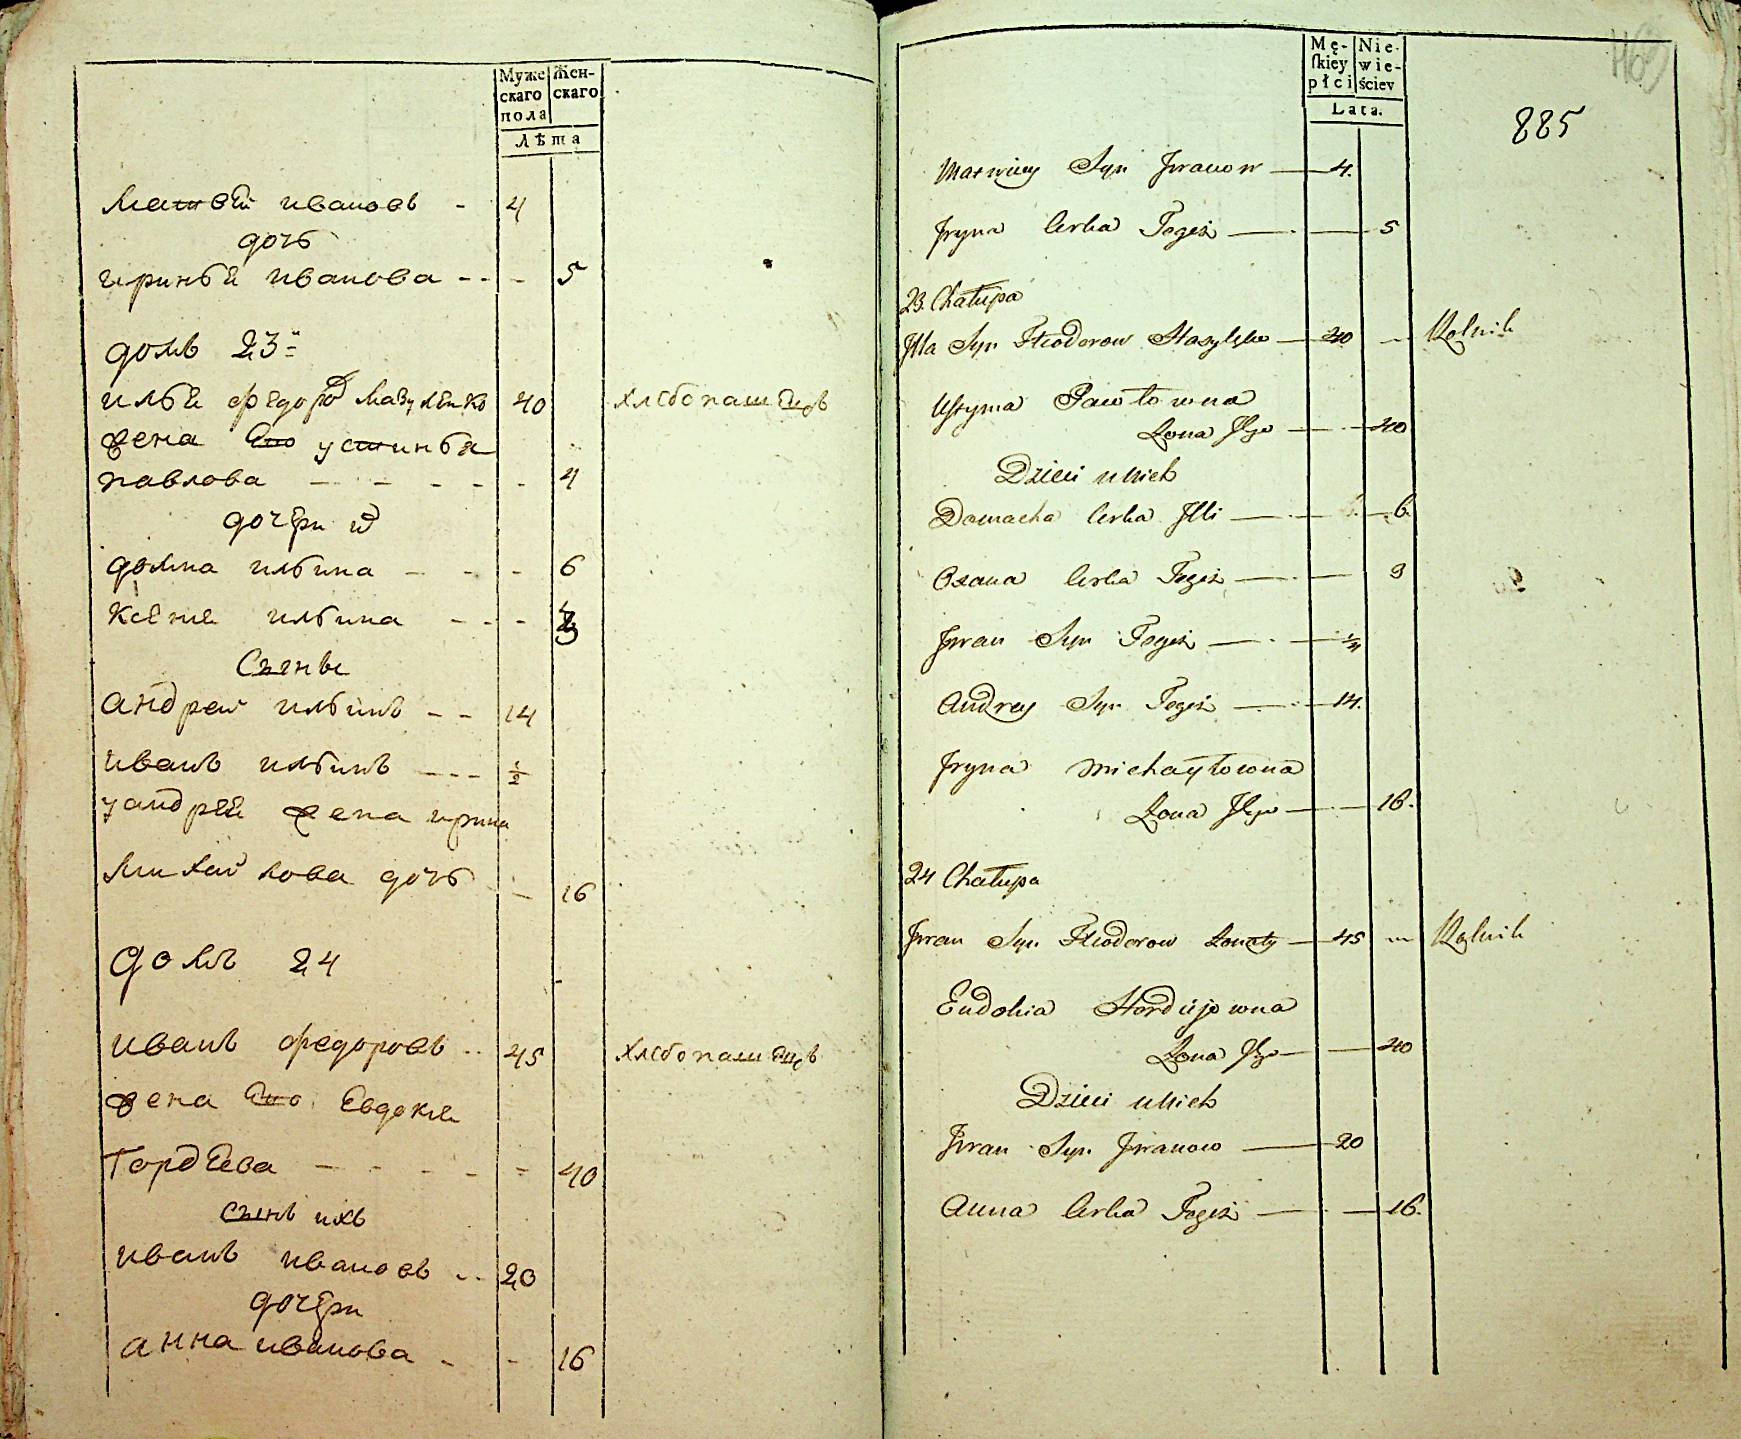 Муже
скаго
пола
Жен-
скаго
Лѣта
Матвей ивановъ - 4
дочь
ириньѣ иванова - - - 5
домъ 23й
илья федоро мазуленко 40 хлебопашецъ
жена Его устинья
павлова - - - - - 4
дочери и
домна ильина - - - 6
Ксения ильина - - - 3
Сыны
Андреи ильинъ - - 14
иванъ ильинъ - - - ½
у андрея жена ирина
михаилова дочь - 16
домъ 24
иванъ федоровъ - - 45 хлебопашецъ
жена Его Евдокия
Гордеева - - - - = 40
сынъ ихъ
иванъ ивановъ - - 20
дочери
анна иванова - - 16
Mę-
skiey
płci
Nie-
wie-
ściey
Lata.
885
Matwiey Syn Jwanow — 4.
Jryna Corka Tegoż — 5
23. Chałupa
Jlla Syn Fheodorow Mazylęko — 40 — Rolnik
Ustyma Pawłowna
Żona Jego — 40
Dzieci u Nich
Domacha Corka Jlli — 6.
Oxana Corka Tegoż — 3
Jwan Syn Tegoż —
Andrey Syn Tegoż — 14.
Jryna Michayłowna
Żona Jego — 16.
24 Chałupa
Jwan Syn Fheodorow — 45 — Rolnik
Eudokia Hordiejowna
Żona Jego — 40
Dzieci u Nich
Jwan Syn Jwanow — 20
Anna Corka Tegoż — 16.